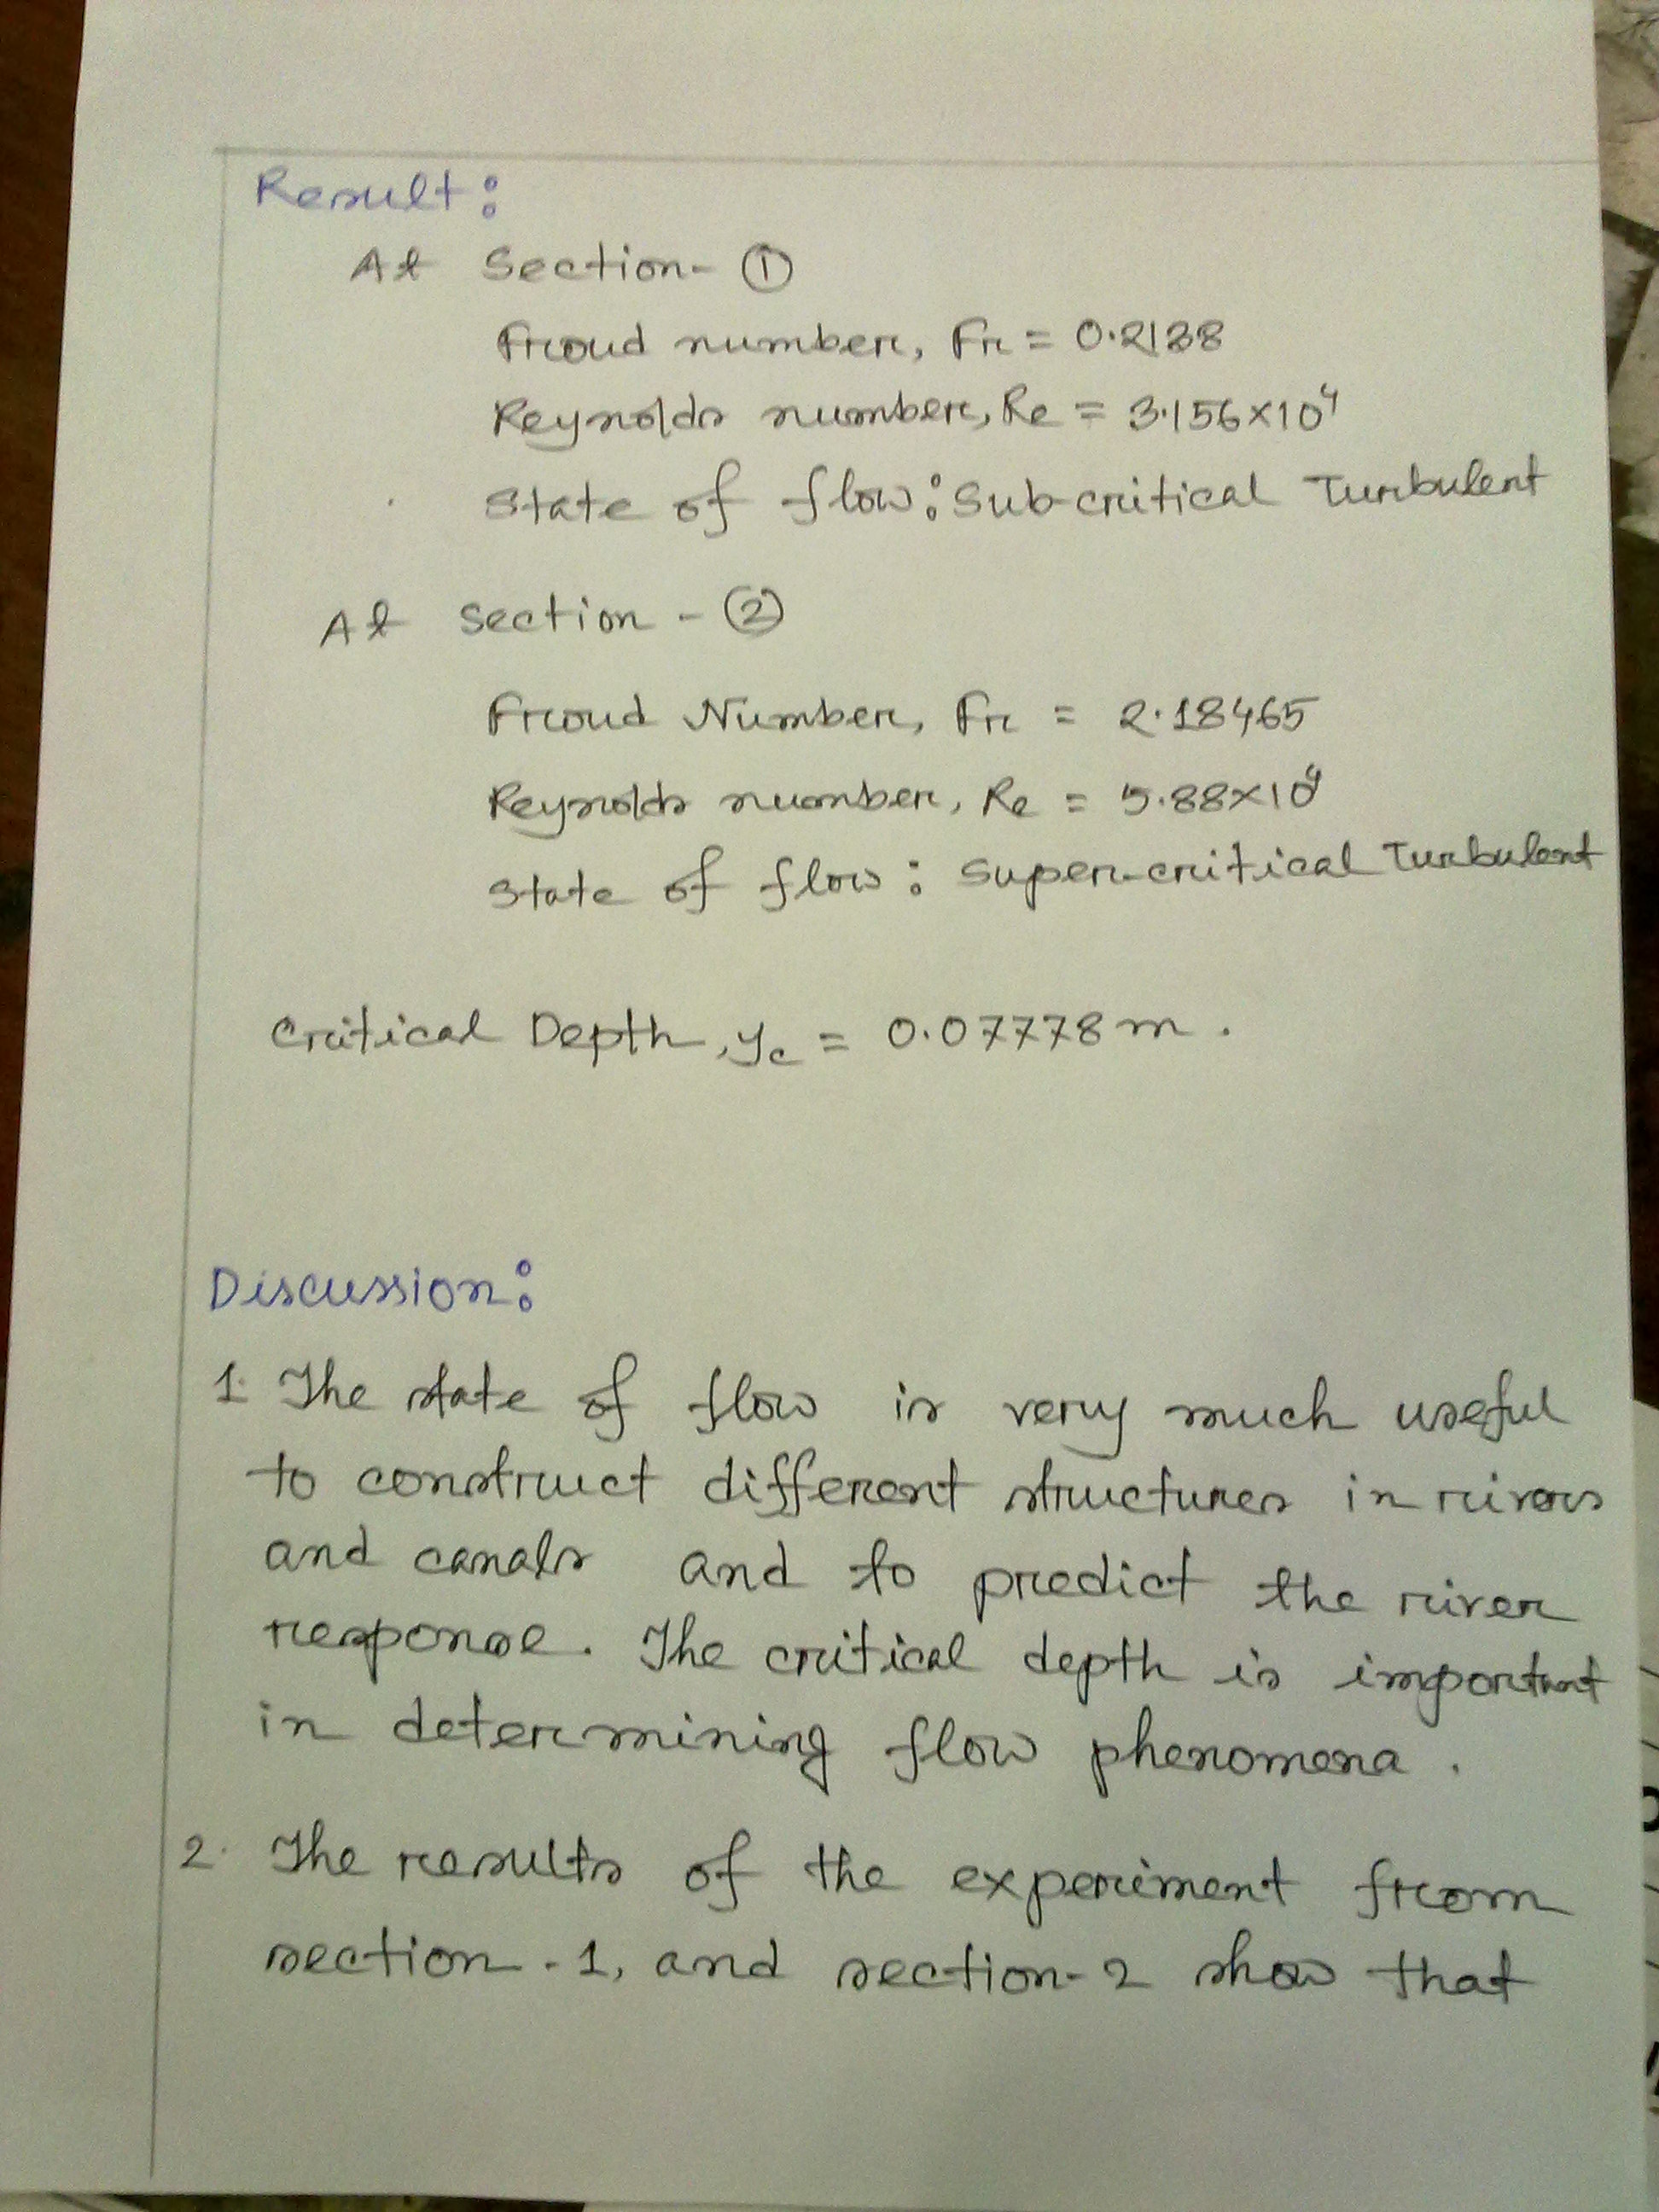 Result:
At Section- ①
Froud number, Fr = 0.2138
Reynolds number, Re = 3.156×10⁴
State of flow: Sub-critical Turbulent
At section - ②
Froud Number, Fr = 2.18465
Reynolds number, Re = 5.88×10⁴
State of flow: Super-critical Turbulent
Critical Depth, yc = 0.07778m.
Discussion:
1. The state of flow is very much useful
to construct different structures in rivers
and canals and to predict the river
response. The critical depth is important
in determining flow phenomena.
2. The results of the experiment from
section-1, and section-2 show that